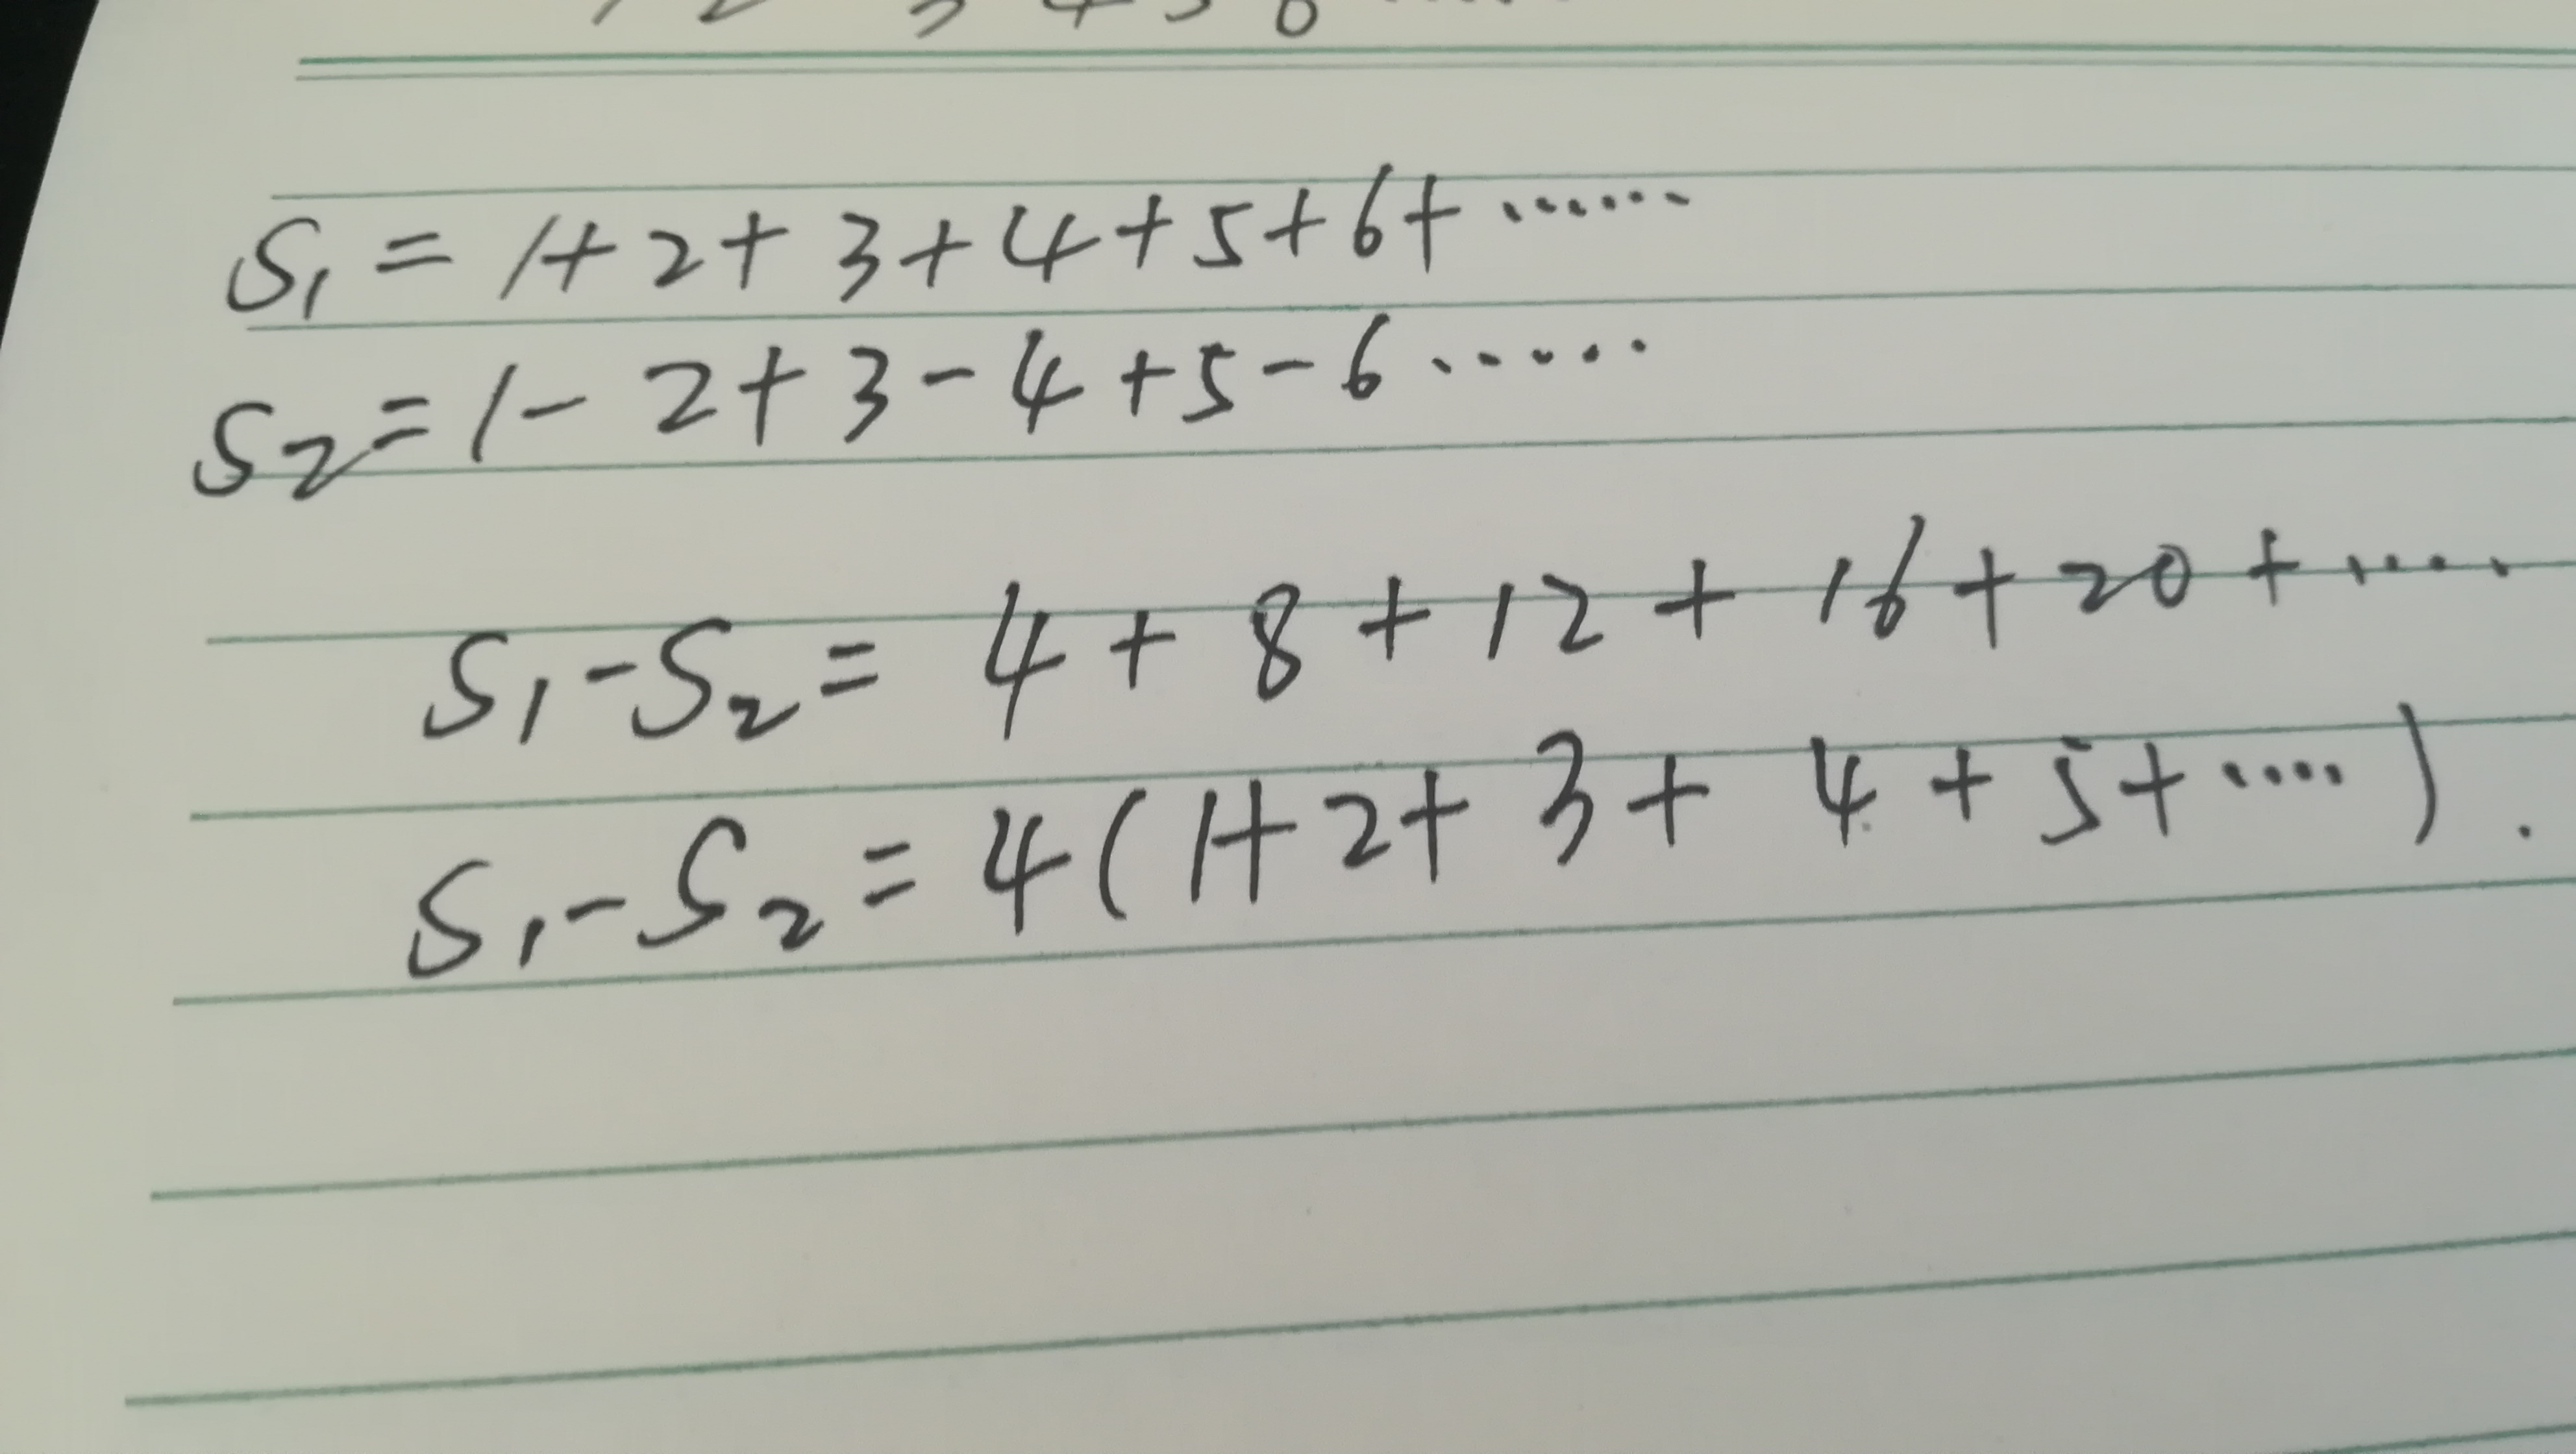 S₁ = 1 + 2 + 3 + 4 + 5 + 6 + ......
S₂ = 1 - 2 + 3 - 4 + 5 - 6 ......
S₁ - S₂ = 4 + 8 + 12 + 16 + 20 + ....
S₁ - S₂ = 4 ( 1 + 2 + 3 + 4 + 5 + .... ) .